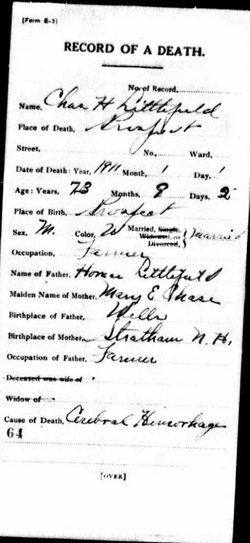 (Form E-3)
RECORD OF A DEATH.
No. of Record,
Name, Chas H Littlefield
Place of Death, Prospect
Street, No., Ward,
Date of Death: Year, 1911 Month, 1 Day, 1
Age: Years, 73 Months, 9 Days, 2
Place of Birth, Prospect
Sex, M. Color, W Married, Single, Widowed, or Divorced, Married
Occupation, Farmer
Name of Father, Horace Littlefield
Maiden Name of Mother, Mary E Chase
Birthplace of Father, Wells
Birthplace of Mother, Stratham N. H.
Occupation of Father, Farmer
Deceased was wife of
Widow of
Cause of Death, Cerebral Hemorhage
64
[OVER]